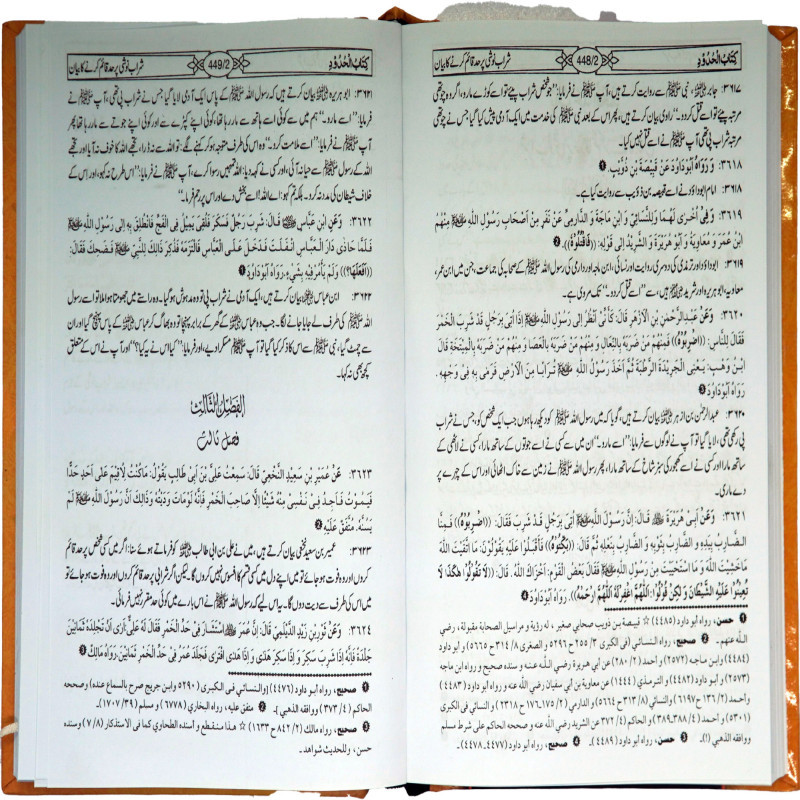 کِتَابُ الْحُدُوْدِ 448/2 شراب نوشی پر حد قائم کرنے کا بیان
۳۶۱۷: جابر رضی اللہ عنہ، نبی ﷺ سے روایت کرتے ہیں، آپ ﷺ نے فرمایا: ’’جو شخص شراب پیئے تو اسے کوڑے مارو، اگر وہ چوتھی
مرتبہ پیئے تو اسے قتل کر دو۔‘‘ راوی بیان کرتے ہیں، پھر اس کے بعد نبی ﷺ کی خدمت میں ایک آدمی پیش کیا گیا جس نے چوتھی
مرتبہ شراب پی تھی آپ ﷺ نے اسے قتل نہیں کیا۔
٣٦١٨: وَ رَوَاهُ أَبُوْدَاوُدَ عَنْ قَبِيْصَةَ بْنِ ذُوَيْبٍ. ❶
۳۶۱۸: امام ابوداؤد نے اسے قبیصہ بن ذؤیب سے روایت کیا ہے۔
٣٦١٩: وَفِيْ أُخْرٰى لَهُمَا وَلِلنَّسَائِيِّ وَابْنِ مَاجَةَ وَالدَّارِمِيِّ عَنْ نَفَرٍ مِنْ أَصْحَابِ رَسُوْلِ اللّٰهِ ﷺ مِنْهُمْ
ابْنُ عُمَرَ وَ مُعَاوِيَةُ وَ أَبُوْ هُرَيْرَةَ وَ الشَّرِيْدُ إِلٰى قَوْلِهِ: ((فَاقْتُلُوْهُ)). ❷
۳۶۱۹: ابوداؤد اور ترمذی کی دوسری روایت اور نسائی، ابن ماجہ اور دارمی کی رسول اللہ ﷺ کے صحابہ کی جماعت، جن میں ابن عمر،
معاویہ، ابو ہریرہ اور شرید رضی اللہ عنہم ہیں، سے ’’اسے قتل کر دو۔‘‘ تک مروی ہے۔
٣٦٢٠: وَعَنْ عَبْدِالرَّحْمٰنِ بْنِ الْأَزْهَرِ قَالَ: كَأَنِّيْ أَنْظُرُ إِلٰى رَسُوْلِ اللّٰهِ ﷺ إِذَا أُتِيَ بِرَجُلٍ قَدْ شَرِبَ الْخَمْرَ
فَقَالَ لِلنَّاسِ: ((اضْرِبُوْهُ)) فَمِنْهُمْ مَنْ ضَرَبَهُ بِالنِّعَالِ وَ مِنْهُمْ مَنْ ضَرَبَهُ بِالْعَصَا وَ مِنْهُمْ مَنْ ضَرَبَهُ بِالْمِيْتَخَةِ قَالَ
ابْنُ وَهْبٍ: يَعْنِي الْجَرِيْدَةَ الرَّطْبَةَ ثُمَّ أَخَذَ رَسُوْلُ اللّٰهِ ﷺ تُرَابًا مِنَ الْأَرْضِ فَرَمٰى بِهِ فِيْ وَجْهِهِ.
رَوَاهُ أَبُوْدَاوُدَ ❸
۳۶۲۰: عبدالرحمٰن بن ازہر بیان کرتے ہیں، گویا کہ میں رسول اللہ ﷺ کو دیکھ رہا ہوں جب ایک شخص کو، جس نے شراب
پی رکھی تھی، لایا گیا تو آپ نے لوگوں سے فرمایا: ’’اسے مارو۔‘‘ ان میں سے کسی نے اسے جوتوں کے ساتھ مارا، کسی نے لاٹھی کے
ساتھ مارا اور کسی نے اسے کھجور کی سبز شاخ کے ساتھ مارا، پھر رسول اللہ ﷺ نے زمین سے خاک اٹھائی اور اس کے چہرے پر
دے ماری۔
٣٦٢١: وَعَنْ أَبِيْ هُرَيْرَةَ رضی اللہ عنہ قَالَ: إِنَّ رَسُوْلَ اللّٰهِ ﷺ أُتِيَ بِرَجُلٍ قَدْ شَرِبَ فَقَالَ: ((اضْرِبُوْهُ)) فَمِنَّا
الضَّارِبُ بِيَدِهِ وَ الضَّارِبُ بِثَوْبِهِ وَ الضَّارِبُ بِنَعْلِهِ ثُمَّ قَالَ: ((بَكِّتُوْهُ)) فَأَقْبَلُوْا عَلَيْهِ يَقُوْلُوْنَ: مَا اتَّقَيْتَ اللّٰهَ
مَاخَشِيْتَ اللّٰهَ وَ مَا اسْتَحْيَيْتَ مِنْ رَسُوْلِ اللّٰهِ ﷺ فَقَالَ بَعْضُ الْقَوْمِ: أَخْزَاكَ اللّٰهُ. قَالَ: ((لَا تَقُوْلُوْا هٰكَذَا لَا
تُعِيْنُوْا عَلَيْهِ الشَّيْطَانَ وَ لٰكِنْ قُوْلُوْا: اَللّٰهُمَّ اغْفِرْلَهُ اَللّٰهُمَّ ارْحَمْهُ)). رَوَاهُ أَبُوْدَاوُدَ ❹
❶ حسن، رواه أبو داود (٤٤٨٥) ☆ قبيصة بن ذويب صحابي صغير، له رؤية و مراسيل الصحابة مقبولة، رضي
الله عنهم۔ ❷ صحيح، رواه النسائي (في الكبرى ٣/ ٢٥٥ ح ٥٢٩٦ والصغرى ٨/ ٣١٤ ح ٥٦٦٥) و أبو داود
(٤٤٨٤) وابن ماجه (٢٥٧٢) و أحمد (٢/ ٢٨٠) عن أبي هريرة رضي الله عنه و سنده صحيح و رواه ابن ماجه
(٢٥٧٣) و أبو داود (٤٤٨٢) والترمذي (١٤٤٤) عن معاوية بن أبي سفيان رضي الله عنه و رواه أبو داود (٤٤٨٣)
و أحمد (٢/ ١٣٦ ح ٦١٩٧) والنسائي (٨/ ٣١٣ ح ٥٦٦٤) والدارمي (٢/ ١٧٥، ١٧٦ ح ٢٣١٨) والنسائي في الكبرى
(٥٣٠١) و أحمد (٤/ ٣٨٨،٣٨٩) و الحاكم (٤/ ٣٧٢) عن الشريد رضي الله عنه و صححه الحاكم على شرط مسلم
ووافقه الذهبي (!)۔ ❸ حسن، رواه أبو داود (٤٤٨٩)۔ ❹ صحيح، رواه أبو داود (٤٤٧٧، ٤٤٧٨)۔
کِتَابُ الْحُدُوْدِ 449/2 شراب نوشی پر حد قائم کرنے کا بیان
۳۶۲۱: ابو ہریرہ رضی اللہ عنہ بیان کرتے ہیں کہ رسول اللہ ﷺ کے پاس ایک آدمی لایا گیا جس نے شراب پی تھی، آپ ﷺ نے
فرمایا: ’’اسے مارو۔‘‘ ہم میں سے کوئی اسے ہاتھ سے مار رہا تھا، کوئی اپنے کپڑے سے اور کوئی اپنے جوتے سے مار رہا تھا پھر
آپ ﷺ نے فرمایا: ’’اسے ملامت کرو۔‘‘ وہ اس کی طرف متوجہ ہو کر کہنے لگے، تو اللہ سے نہ ڈرا، تجھے اللہ کا خوف نہ آیا اور تجھے
اللہ کے رسول ﷺ سے حیا نہ آئی، اور کسی نے کہہ دیا: اللہ تمہیں رسوا کرے، آپ ﷺ نے فرمایا: ’’اس طرح نہ کہو، اور اس کے
خلاف شیطان کی مدد نہ کرو۔ بلکہ تم کہو: اے اللہ! اسے بخش دے اور اس پر رحم فرما۔‘‘
٣٦٢٢: وَعَنِ ابْنِ عَبَّاسٍ رضی اللہ عنہ قَالَ: شَرِبَ رَجُلٌ فَسَكِرَ فَلُقِيَ يَمِيْلُ فِي الْفَجِّ فَانْطُلِقَ بِهِ إِلٰى رَسُوْلِ اللّٰهِ ﷺ
فَلَمَّا حَاذٰى دَارَ الْعَبَّاسِ انْفَلَتَ فَدَخَلَ عَلَى الْعَبَّاسِ فَالْتَزَمَهُ فَذُكِرَ ذَالِكَ لِلنَّبِيِّ ﷺ فَضَحِكَ فَقَالَ:
((أَفَعَلَهَا؟)) وَلَمْ يَأْمُرْ فِيْهِ بِشَيْءٍ. رَوَاهُ أَبُوْدَاوُدَ ❶
۳۶۲۲: ابن عباس رضی اللہ عنہ بیان کرتے ہیں، ایک آدمی نے شراب پی تو وہ مدہوش ہو گیا۔ وہ راستے میں جھومتا ہوا ملا تو اسے رسول
اللہ ﷺ کی طرف لے جایا جانے لگا۔ جب وہ عباس رضی اللہ عنہ کے گھر کے برابر پہنچا تو وہ بھاگ کر عباس رضی اللہ عنہ کے پاس پہنچ گیا اور ان
سے چمٹ گیا، نبی ﷺ سے اس کا ذکر کیا گیا تو آپ ﷺ مسکرا دیے، اور فرمایا: ’’کیا اس نے یہ کیا؟‘‘ اور آپ نے اس کے متعلق
کچھ بھی نہ کہا۔
الفصل الثالث
فصل ثالث
٣٦٢٣: عَنْ عُمَيْرِ بْنِ سَعِيْدِ النَّخَعِيِّ قَالَ: سَمِعْتُ عَلِيَّ بْنَ أَبِيْ طَالِبٍ يَقُوْلُ: مَاكُنْتُ لِأُقِيْمَ عَلٰى أَحَدٍ حَدًّا
فَيَمُوْتَ فَأَجِدَ فِيْ نَفْسِيْ مِنْهُ شَيْئًا إِلَّا صَاحِبَ الْخَمْرِ فَإِنَّهُ لَوْ مَاتَ وَدَيْتُهُ وَذَالِكَ أَنَّ رَسُوْلَ اللّٰهِ ﷺ لَمْ
يَسُنَّهُ. مُتَّفَقٌ عَلَيْهِ ❷
۳۶۲۳: عمیر بن سعید نخعی بیان کرتے ہیں، میں نے علی بن ابی طالب رضی اللہ عنہ کو فرماتے ہوئے سنا: اگر میں کسی شخص پر حد قائم
کروں اور وہ فوت ہو جائے تو میں اپنے دل میں کسی قسم کا افسوس نہیں کروں گا۔ لیکن اگر شرابی پر حد قائم کروں اور وہ فوت ہو جائے تو
میں اس کی طرف سے دیت دوں گا۔ یہ اس لیے کہ رسول اللہ ﷺ نے اس بارے میں کوئی حد مقرر نہیں فرمائی۔
٣٦٢٤: وَعَنْ ثَوْرِ بْنِ زَيْدٍ الدَّيْلَمِيِّ قَالَ: إِنَّ عُمَرَ رضی اللہ عنہ اسْتَشَارَ فِيْ حَدِّ الْخَمْرِ فَقَالَ لَهُ عَلِيٌّ: أَرٰى أَنْ تَجْلِدَهُ ثَمَانِيْنَ
جَلْدَةً فَإِنَّهُ إِذَا شَرِبَ سَكِرَ وَ إِذَا سَكِرَ هَذٰى وَ إِذَا هَذٰى افْتَرٰى فَجَلَدَ عُمَرُ فِيْ حَدِّ الْخَمْرِ ثَمَانِيْنَ. رَوَاهُ مَالِكٌ ❸
❶ صحيح، رواه أبو داود (٤٤٧٦) [والنسائي في الكبرى (٥٢٩٠) وابن جريج صرح بالسماع عنده) وصححه
الحاكم (٤/ ٣٧٣) ووافقه الذهبي]۔ ❷ متفق عليه، رواه البخاري (٦٧٧٨) و مسلم (٣٩/ ١٧٠٧)۔
❸ صحيح، رواه مالك (٢/ ٨٤٢ ح ١٦٣٣) ☆ هذا منقطع و أسنده الطحاوي كما في الاستذكار (٨/ ٧) وسنده
حسن، وللحديث شواهد۔